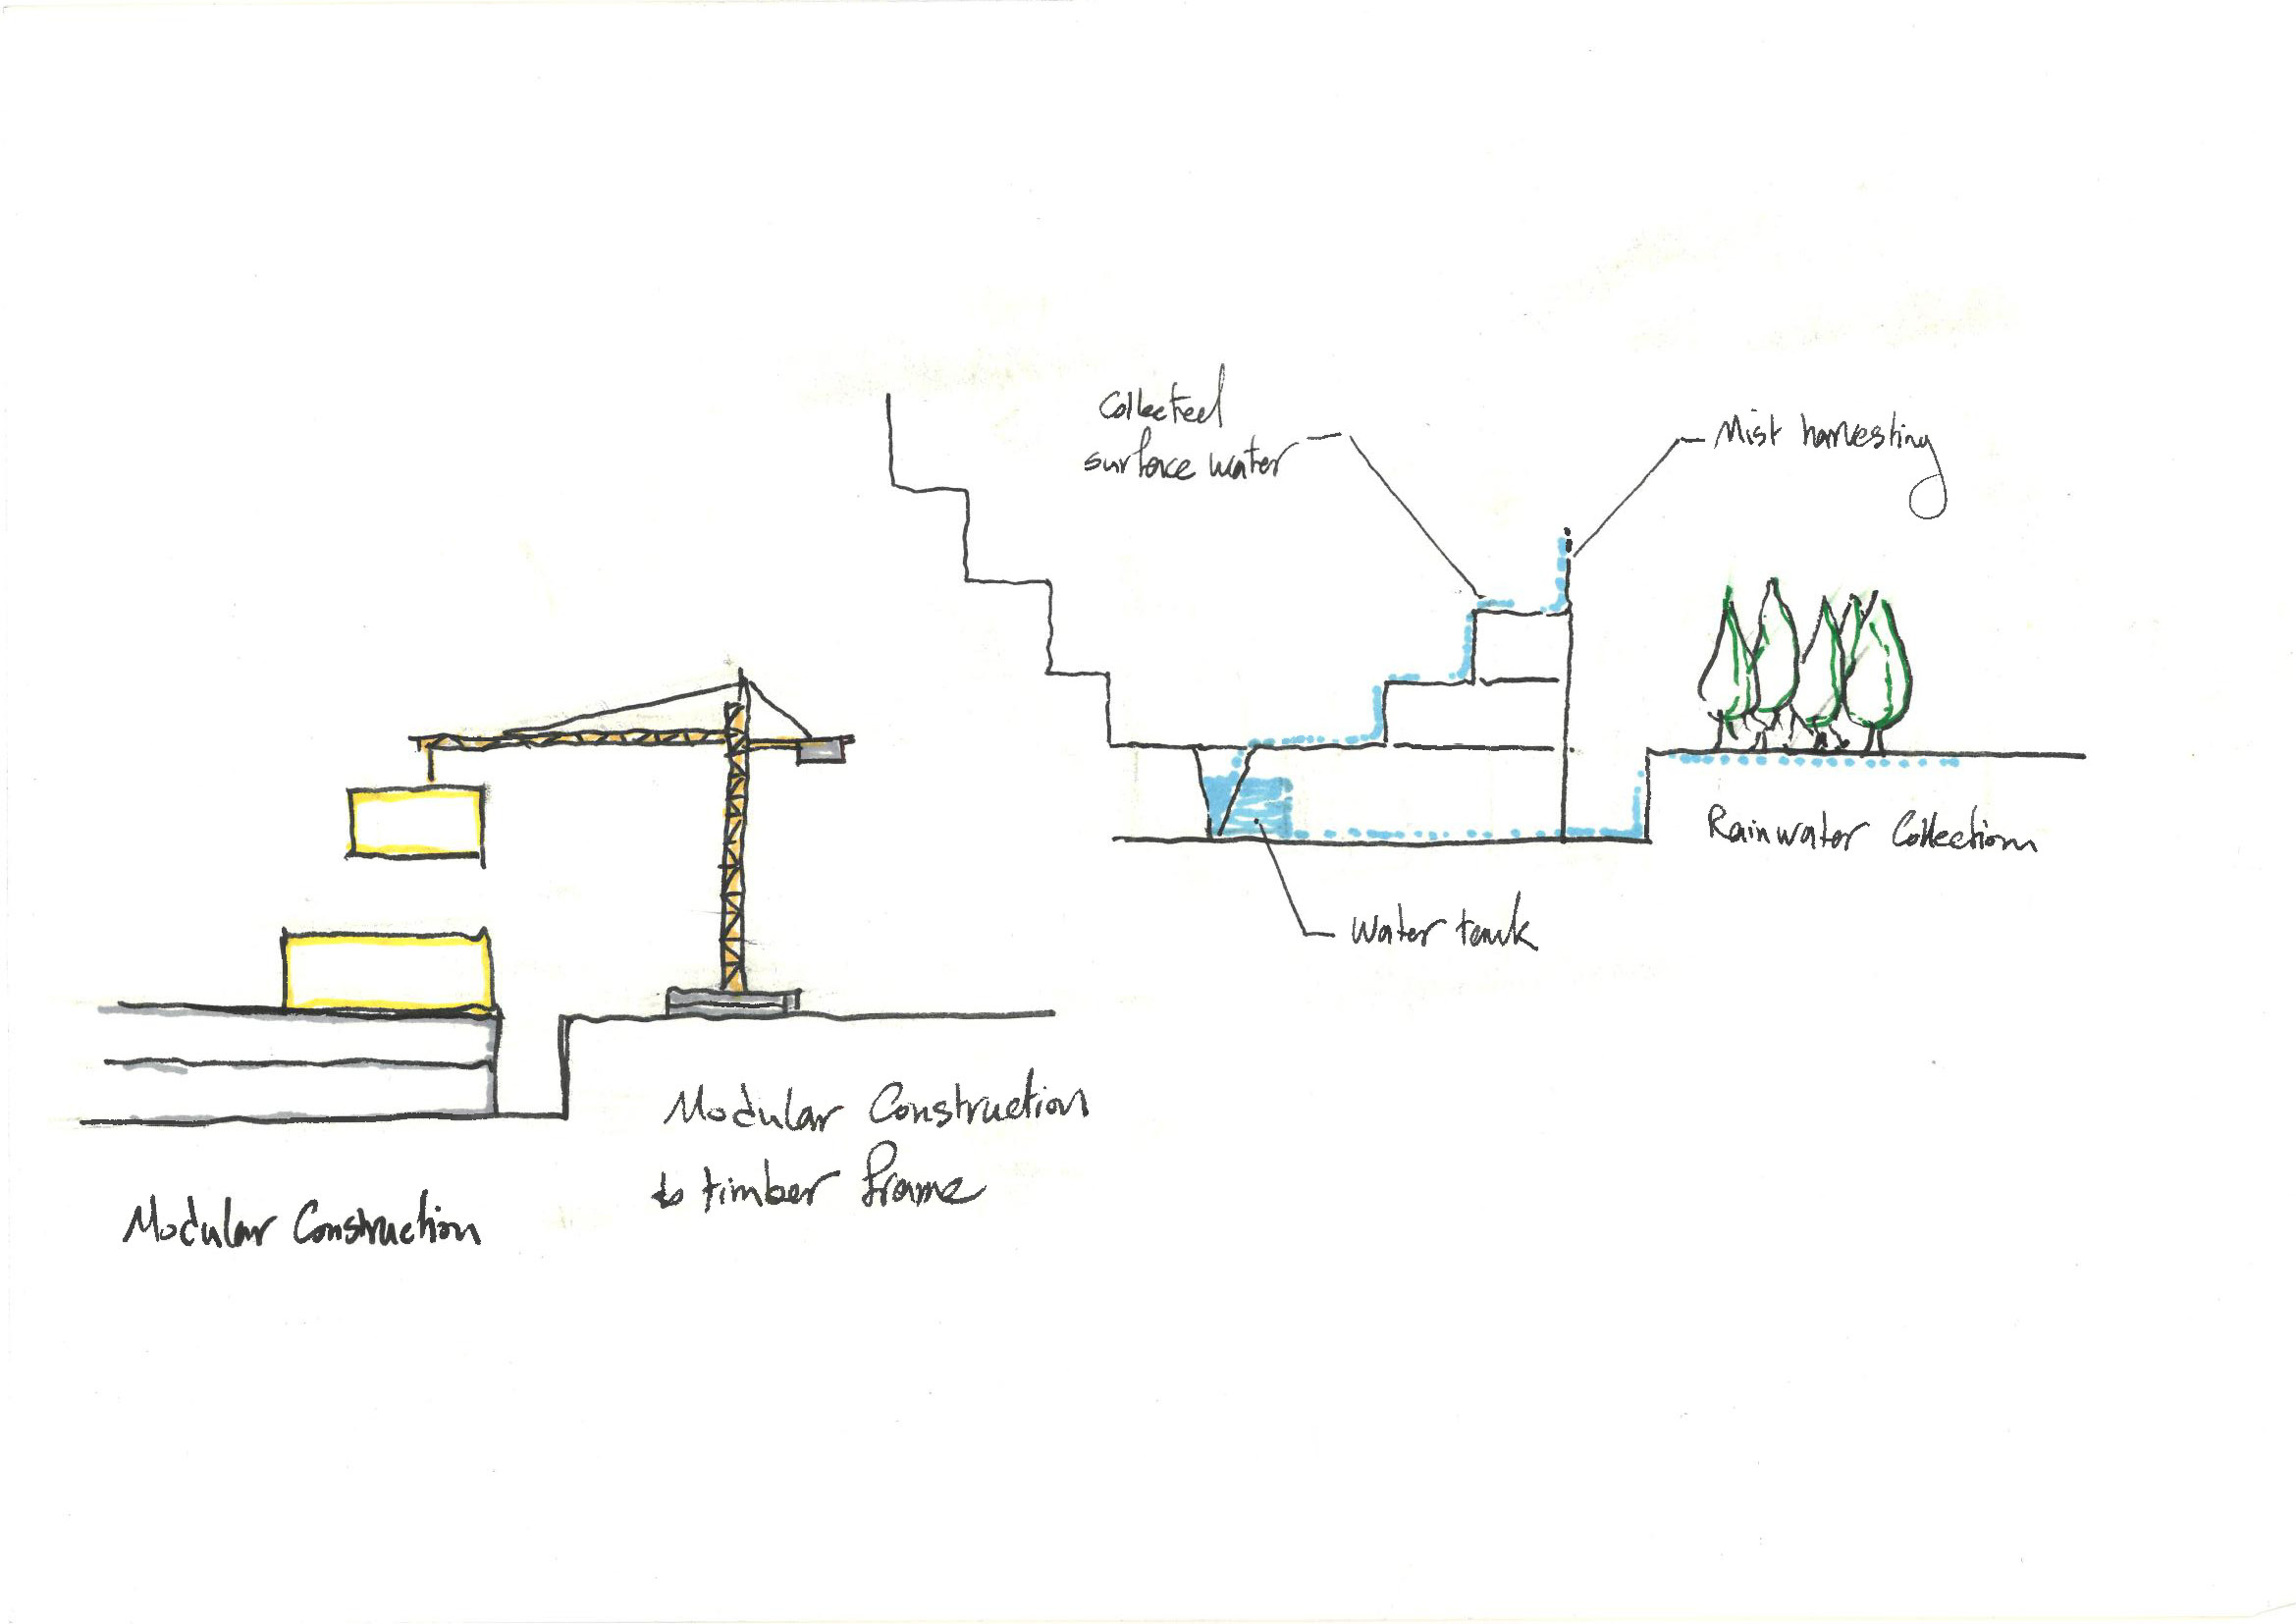 Collected
surface water
Mist harvesting
Rainwater Collection
Water tank
Modular Construction
timber frame
Modular Construction